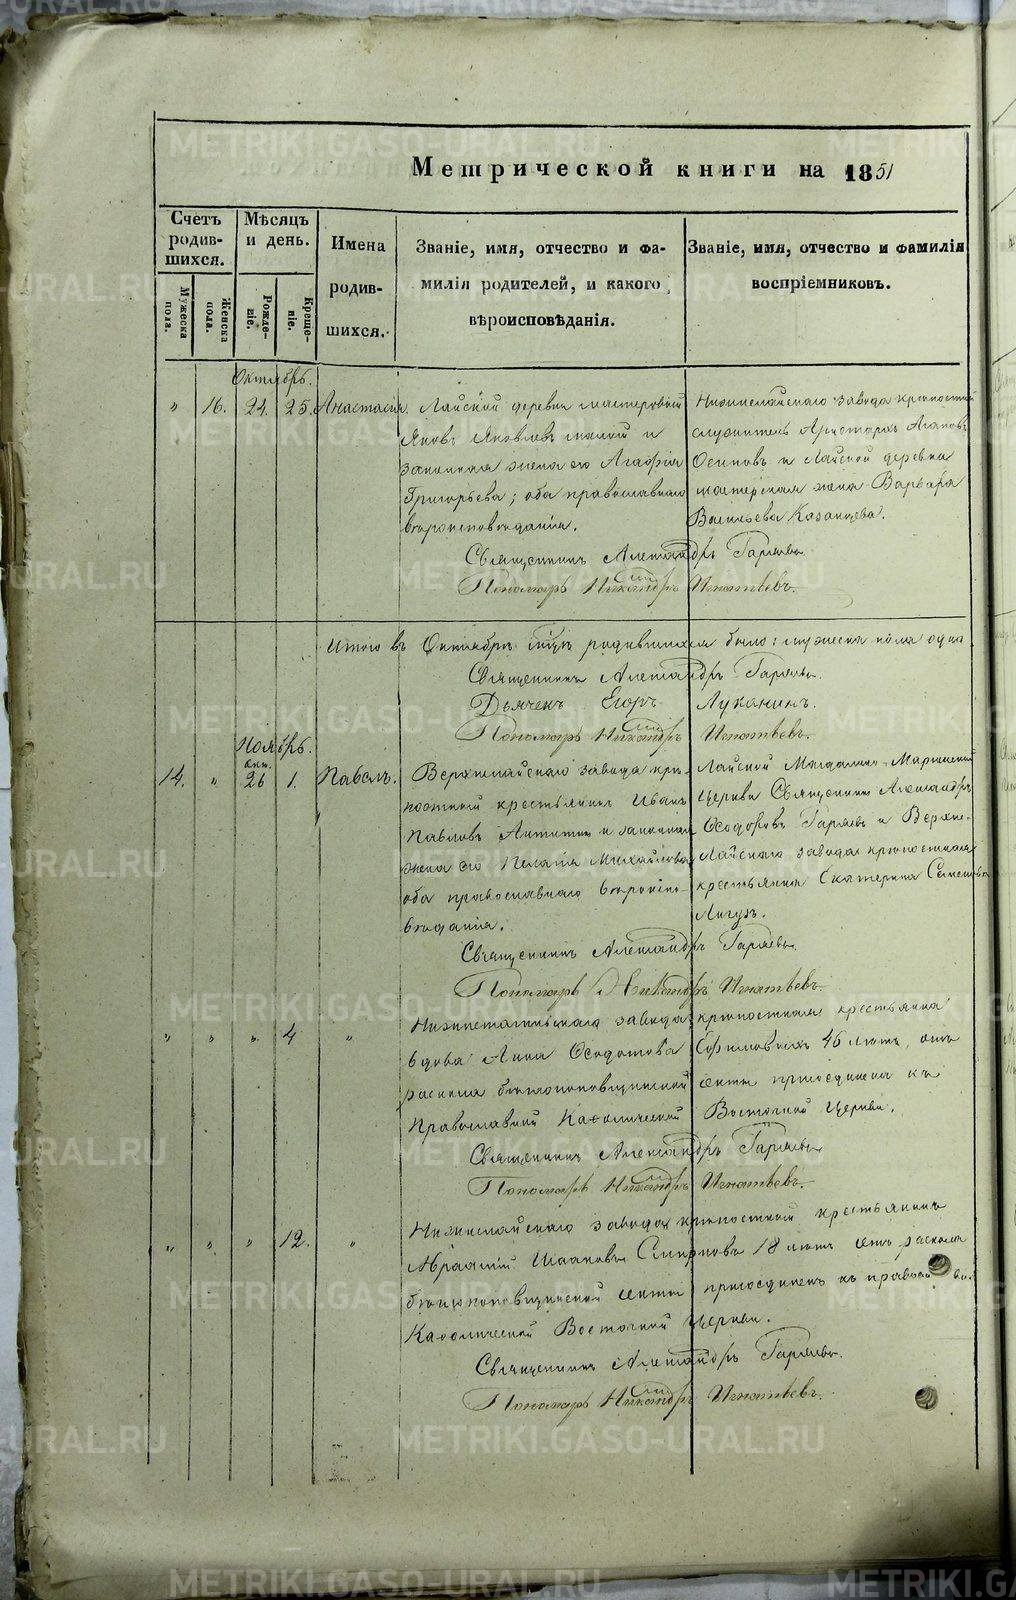 Метрической книги на 1851
Счетъ родившихся.
Мужеска пола.
Женска пола.
Мѣсяцъ и день.
Рожденіе.
Крещеніе.
Имена родившихся.
Званіе, имя, отчество и фамилія родителей, и какого вѣроисповѣданія.
Званіе, имя, отчество и фамилія воспріемниковъ.
Октябрь.
" 16. 24. 25. Анастасія.
Лайской деревни мастеровый
Яковъ Яковлевъ и
законная жена его Агафія
Григорьева; оба православнаго
вѣроисповѣданія.
Нижнелайскаго завода крѣпостной
служитель Аристархъ Агаповъ
Осиповъ и Лайской деревни
мастерская жена Варвара
Васильева Казанцева.
Священникъ Александръ Гаряевъ.
Пономарь Никандръ Игнатьевъ.
Итого въ Октябрѣ мцѣ родившихся было: мужеска пола одна
Священникъ Александръ Гаряевъ.
Дьячекъ Егоръ Луканинъ.
Пономарь Никандръ Игнатьевъ.
Ноябрь.
окт.
14. " 26 1. Павелъ.
Верхнелайскаго завода крѣ-
постный крестьянинъ Иванъ
Павловъ и законная
жена его Пелагія Михайлова
оба православнаго вѣроиспо-
вѣданія.
Лайской Магдалино-Маріинской
Церкви Священникъ Александръ
Ѳеодоровъ Гаряевъ и Верхне-
Лайскаго завода крѣпостная
крестьянка Екатерина Семенова
Священникъ Александръ Гаряевъ.
Пономарь Никандръ Игнатьевъ.
" " " 4 "
Нижнетагильскаго завода крѣпостная крестьянка
вдова Анна Ѳеодотова 46 лѣтъ, отъ
раскола бѣглопоповщинской секты присоединена къ
Православной Каѳолической Восточной Церкви.
Священникъ Александръ Гаряевъ
Пономарь Никандръ Игнатьевъ.
" " " 12. "
Нижнелайскаго завода крѣпостной крестьянинъ
Аѳанасій Исааковъ Смирновъ 18 лѣтъ отъ раскола
бѣглопоповщинской секты присоединенъ къ правосл
Каѳолической Восточной Церкви.
Священникъ Александръ Гаряевъ.
Пономарь Никандръ Игнатьевъ.
METRIKI.GASO-URAL.RU